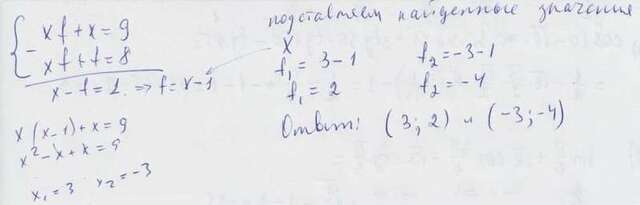 xf+x=9
− xf+f=8
x-f=1 ⇒ f=x-1
x(x-1)+x=9
x²-x+x=9
x₁=3 x₂=-3
подставляем найденные значения
x
f₁ = 3-1 f₂=-3-1
f₁ = 2 f₂=-4
Ответ: (3; 2) и (-3;-4)